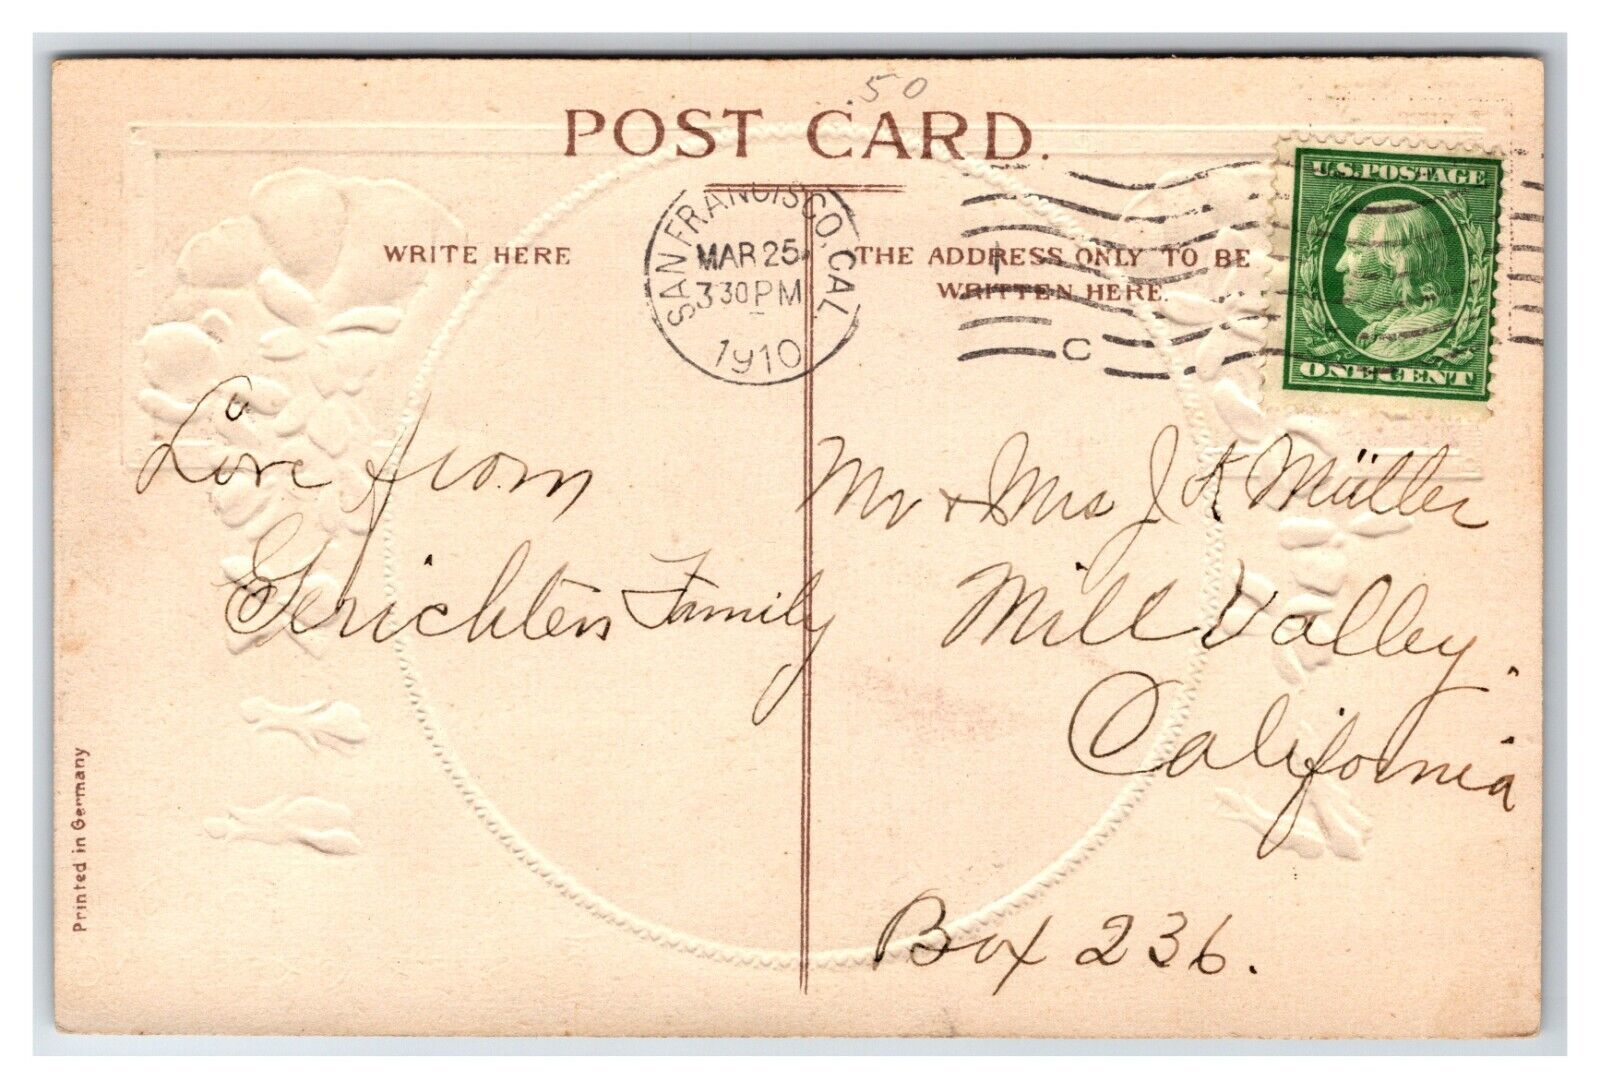 50
POST CARD.
WRITE HERE
SAN FRANCISCO, CAL.
MAR 25
3 30 PM
1910
THE ADDRESS ONLY TO BE
WRITTEN HERE.
C
U.S. POSTAGE
ONE CENT
Love from
Gerichten Family
Mr & Mrs J K Müller
Mill Valley.
California
Box 236.
Printed in Germany